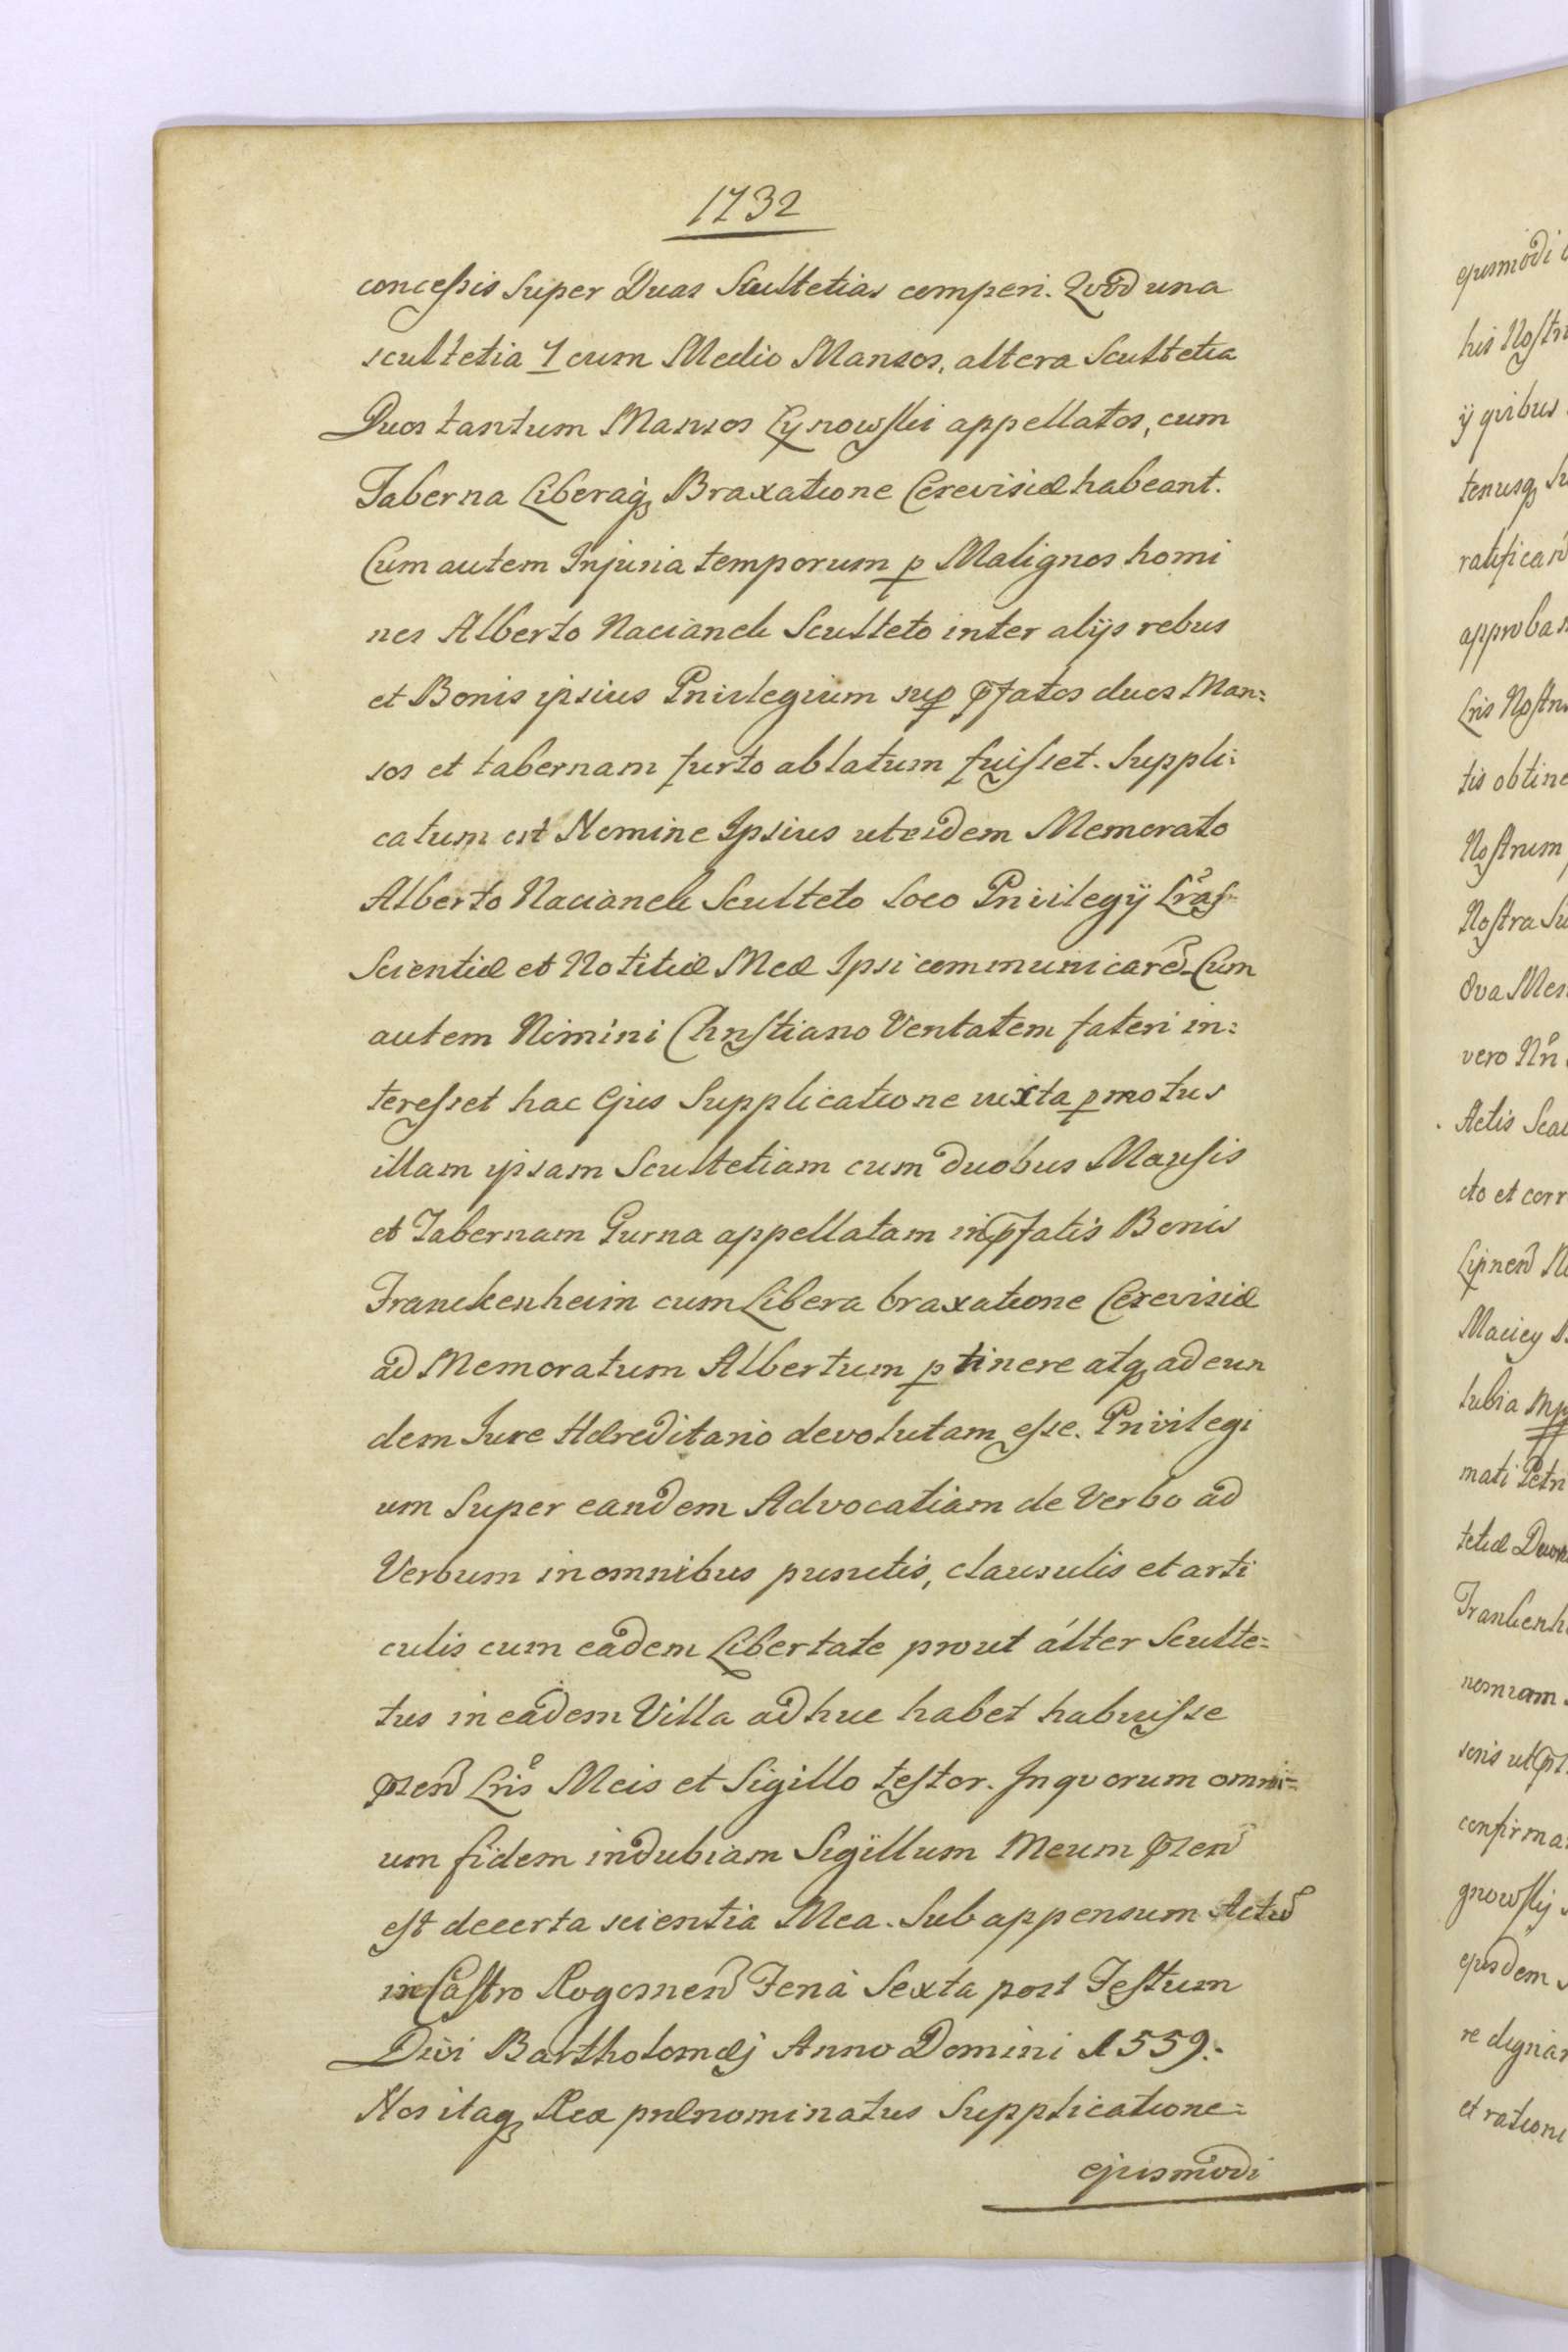 1732
concessis Super Duas Scultetias comperi. Qvod una
scultetia 1 cum Medio Mansos, altera Scultetia
Duos tantum Mansos Cynowski appellatos, cum
Taberna Liberaq; Braxatione Cerevisiæ habeant.
Cum autem Injuria temporum p Malignos homi
nes Alberto Nacianek Sculteto inter alijs rebus
et Bonis ipsius Privilegium sup pfatos duos Man=
sos et tabernam furto ablatum fuisset. Suppli=
catum est Nomine Ipsius ut eidem Memorato
Alberto Nacianek Sculteto Loco Privilegÿ Lras
Scientiæ et Notitiæ Meæ Ipsi communicare Cum
autem Nimini Christiano Veritatem fateri in=
teresset hac Ejus Supplicatione iuxta pmotus
illam ipsam Scultetiam cum duobus Mansis
et Tabernam Gurna appellatam in pfatis Bonis
Franckenheim cum Libera braxatione Cerevisiæ
ad Memoratum Albertum ptinere atq; ad eun
dem Jure Hæreditario devolutam esse. Privilegi
um Super eandem Advocatiam de Verbo ad
Verbum in omnibus punctis, clausulis et arti
culis cum eadem Libertate prout álter Sculte=
tus in eadem Villa adhuc habet habuisse
pzen Lris Meis et Sigillo testor. In qvorum omni=
um fidem indubiam Sigillum Meum pzen
est de certa scientia Mea. Subappensum Actu
in Castro Rogosnen Feria Sexta post Festum
Divi Bartholomæj Anno Domini 1559.
Nos itaq; Rex prænominatus Supplicatione=
ejusmodi
ejusmodi
his Nostri
ÿ qvibus
tenusq;
ratifican
approba
Lris Nostri
tis obtine
Nostrum
Nostra Su
Ova
vero Nn
Actis
cto et corr
Lipnen
Maciey
lubia mp
mati Petri
tetiæ Duor
Frankenh
nomiam
soris ut
confirma
gnowskij
ejusdem
re dignar
et ratione